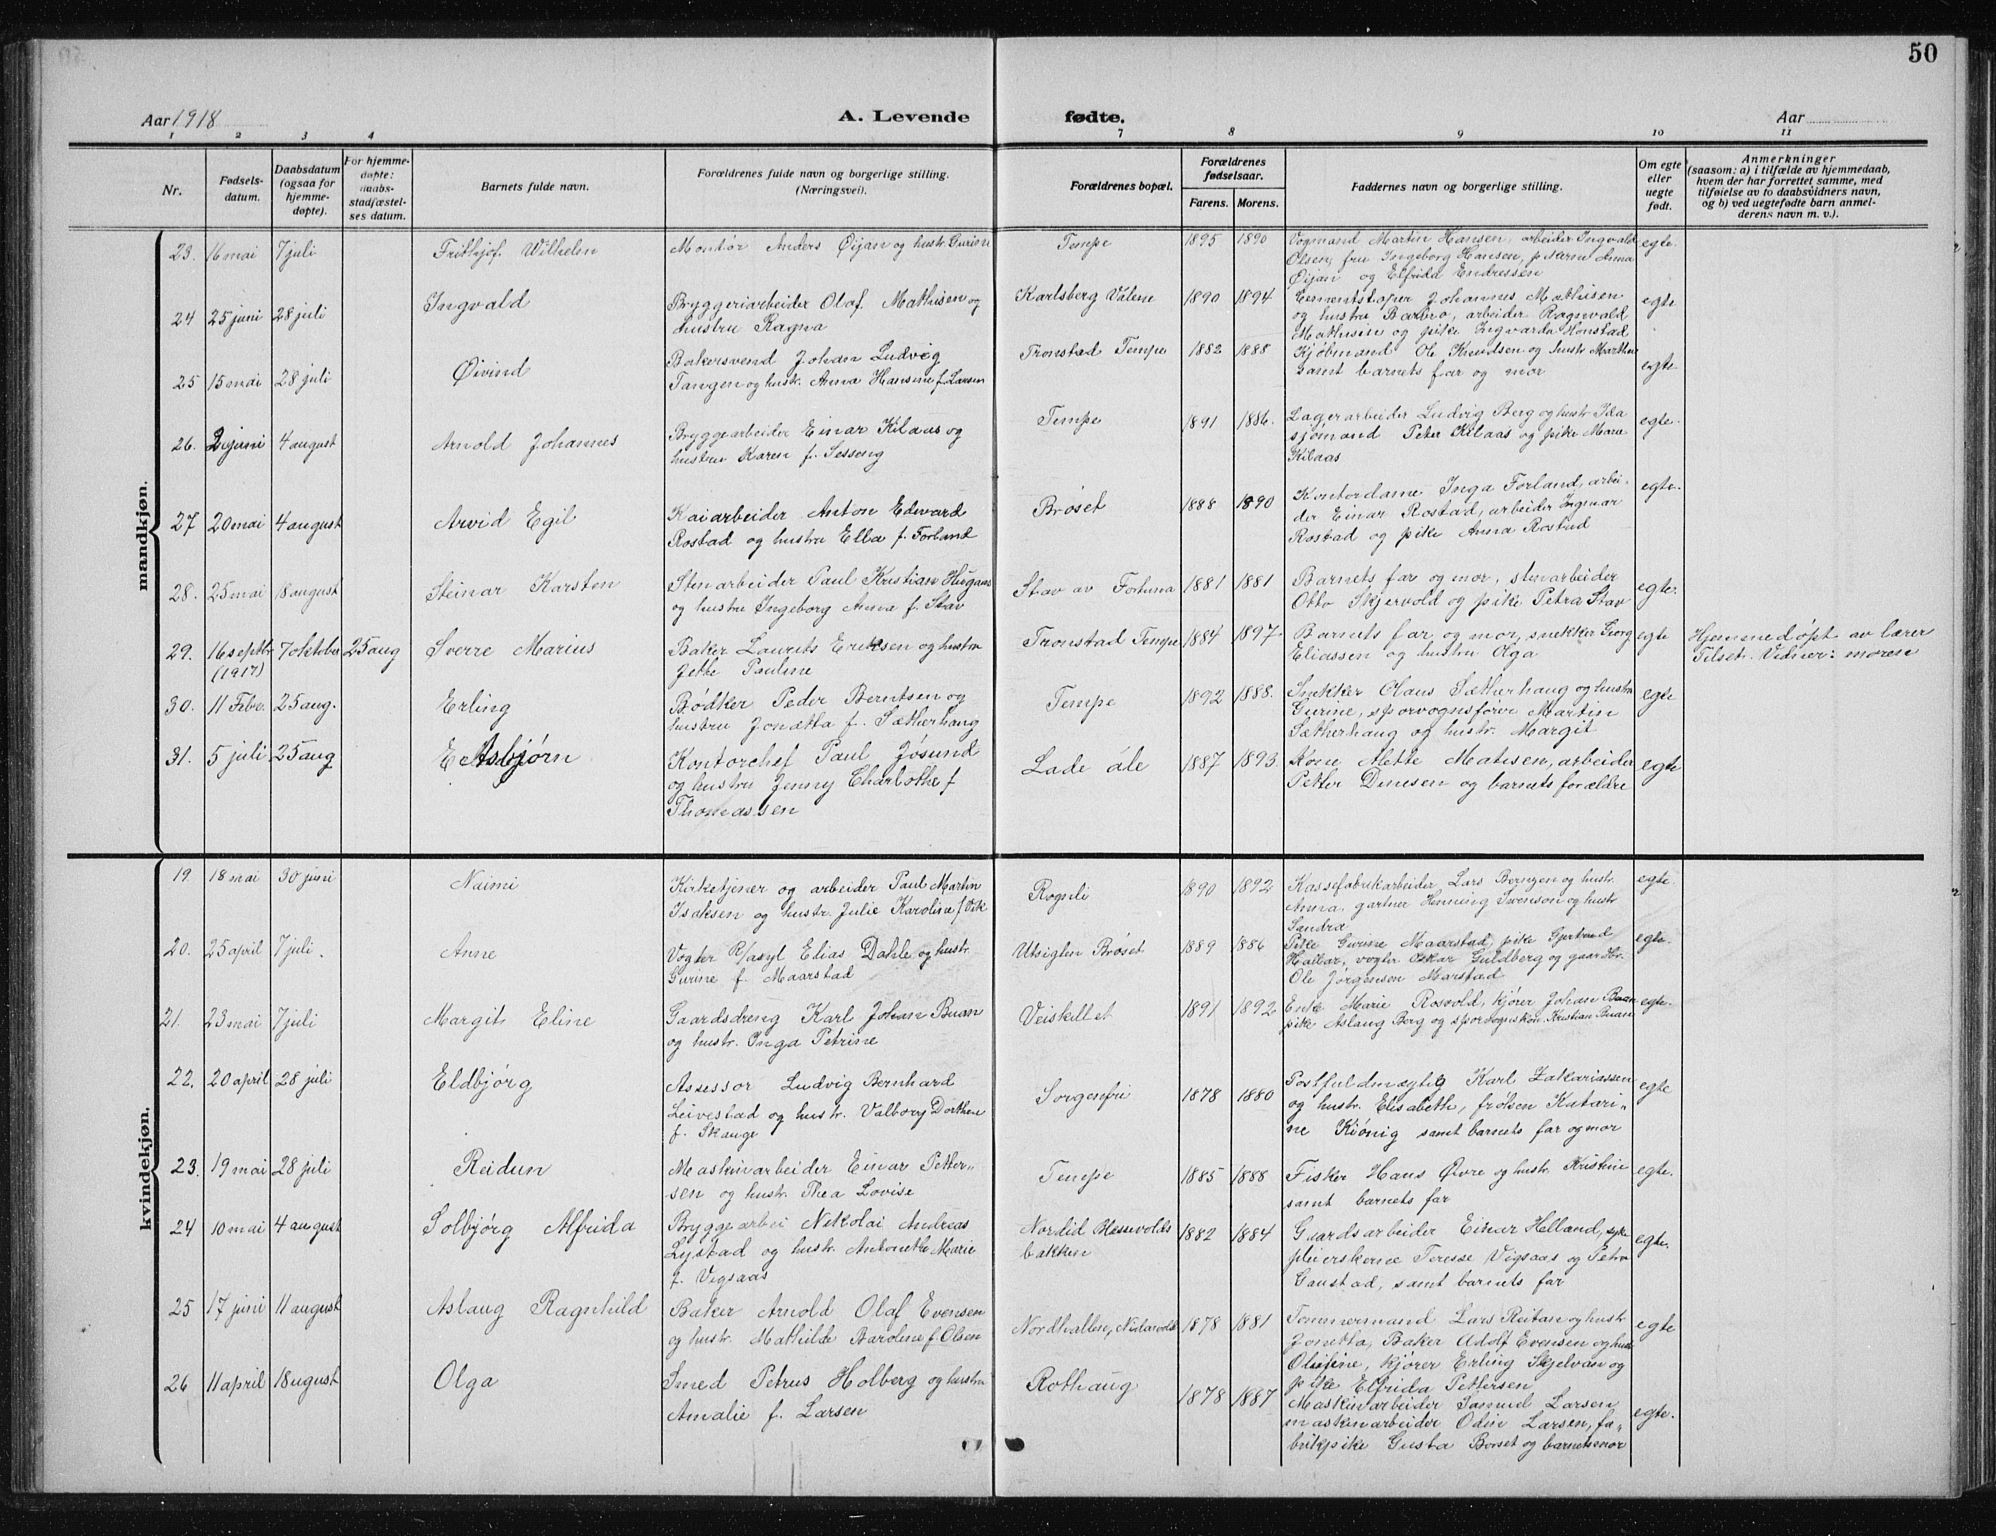 50
Aar 1918
A. Levende fødte.
Aar
1 2 3 4 7 8 9 10 11
Nr.
Fødsels-
datum.
Daabsdatum
(ogsaa for
hjemme-
døpte).
For hjemme-
døpte:
daabs-
stadfæstel-
ses datum.
Barnets fulde navn.
Forældrenes fulde navn og borgerlige stilling.
(Næringsvei).
Forældrenes bopæl.
Forældrenes
fødselsaar.
Farens. Morens.
Faddernes navn og borgerlige stilling.
Om egte
eller
uegte
født.
Anmerkninger
(saasom: a) i tilfælde av hjemmedaab,
hvem der har forrettet samme, med
tilføielse av to daabsvidners navn,
og b) ved uegtefødte barn anmel-
derens navn m. v.).
mandkjøn.
23. 16 mai 7 juli Frithjof Wilhelm
Montør Anders Øijan og hustr. Gurine
Tempe 1895 1890
Vogmand Martin Hansen, arbeider Ingvald
Olsen, fru Ingeborg Hansen, pikerne Anna
Øijan og Elfrida Endressen
egte.
24 25 juni 28 juli Ingvald
Bryggeriarbeider Olaf Mathisen og
hustru Ragna
Karlsberg Valene 1890 1894
Cementstøper Johannes Mathisen
og hustru Barbro, arbeider Ragnvald
Mathisen og pike Ingvarda Honstad
egte.
25 15 mai 28 juli Øivind
Bakersvend Johan Ludvig
Tangen og hustr. Anna Hansine f. Larsen
Tronstad Tempe 1882 1888
Kjøbmand O. Knudsen og hustr. Marthe
samt barnets far og mor
egte.
26. 2 juni 4 august Arnold Johannes
Bryggearbeider Einar Kilaas og
hustru Karen f. Sesseng
Tempe 1891 1886.
Lagerarbeider Ludvig Berg og hustr. Ida
sjømand Peter Kilaas og pike Marie
Kilaas
egte.
27 20 mai 4 august Arvid Egil
Kaiarbeider Anton Edward
Rostad og hustru Ella f. Forland
Brøset 1888 1890
Kontordame Inga Forland, arbei-
der Einar Rostad, arbeider Ingmar
Rostad og pike Anna Rostad
egte.
28. 25 mai 18 august Steinar Karsten
Stenarbeider Paul Kristian Hugaas
og hustru Ingeborg Anna f. Stav
Stav av Fortuna 1881 1881
Barnets far og mor, stenarbeider
Otto Skjervold og pike Petra Stav
egte.
29. 16 septbr (1917) 7 oktober 25 aug Sverre Marius
Baker Laurits Eriksen og hustru
Jette Pauline
Tronstad Tempe 1884 1897.
Barnets far og mor, snekker Georg
Eliassen og hustru Olga
egte
Hjemmedøpt av lærer
Tilset. Vidner: moren
30. 11 Febr. 25 aug. Erling
Bødker Peder Berntsen og
hustru Jonetta f. Sætherhaug
Tempe 1892 1888.
Snekker Olaus Sætherhaug og hustru
Gurine, sporvognsfører Martin
Sætherhaug og hustr. Margit
egte
31. 5 juli 25 aug Asbjørn
Kontorchef Paul Jøsund
og hustru Jenny Charlotte f.
Thomassen
Lade ále 1887 1893
Kone Mette Matisen, arbeider
Petter Dinesen og barnets forældre
egte
kvindekjøn.
19. 18 mai 30 juni Naimi
Kirketjener og arbeider Paul Martin
Isaksen og hustr. Julie Karoline f. Vik
Rognli 1890 1892
Kassefabrikarbeider Lars Berntzen og hustr.
Anna, gartner Henning Svenson og hustr
Sandra
egte.
20. 25 april 7 juli. Anne
Vogter R/asyl Elias Dahle og hustr.
Gurine f. Maarstad
Utsigten Brøset 1889 1886
Pike Gurine Maarstad, pike Gjertrud
Hallar, vogter Oskar Guldberg og gaardbr.
Ole Jørgensen Marstad
egte.
21. 23 mai 7 juli Margit Eline
Gaardsdreng Karl Johan Buan
og hustr. Inga Petrine
Veiskillet 1891 1892
Enke Marie Rosvold, kjører Johan Buan
pike Aslaug Berg og sporvognskon. Kristian Buan
egte.
22. 20 april 28 juli Eldbjørg
Assessor Ludvig Bernhard
Leivestad og hustr. Valborg Dorthea
f. Skauge
Sorgenfri 1878 1880
Postfuldmægtig Karl Zakariassen
og hustr. Elisabeth, frøken Katari-
ne Kiönig samt barnets far og mor
egte
23. 19 mai 28 juli Reidun
Maskinarbeider Einar Petter-
sen og hustr. Thea Lovise
Tempe 1885 1888
Fisker Hans Øvre og hustr. Kristine
samt barnets far
egte.
24 10 mai 4 august Solbjørg Alfrida
Bryggearbei Nikolai Andreas
Lystad og hustr. Antonette Marie
f. Vigsaas
Nordid Blessevolds
bakken 1882 1884
Gaardsarbeider Einar Helland, syke
pleierskerne Terese Vigsaas og Petra
Gaustad, samt barnets far
egte.
25 17 juni 11 august Aslaug Ragnhild
Baker Arnold Olaf Evensen
og hustr. Mathilde Baroline f. Olsen
Nordhallene, Nidarvold 1878 1881
Tømmermand Lars Reitan og hustr
Jonetha, Baker Adolf Evensen og hustr
Oline, kjører Erling Skjelvan og
pike Elfrida Pettersen
egte
26 11 april 18 august Olga
Smed Petrus Holberg og hustru
Amalie f. Larsen
Rothaug 1878 1887
Maskinarbeider Samuel Larsen
maskinarbeider Odin Larsen, fa-
brikpike Gusta Borset og barnets mor
egte.